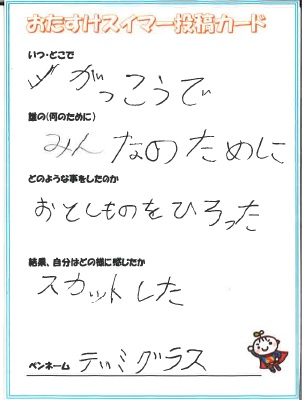 おたすけスイマー投稿カード
いつ・どこで
がっこうで
誰の(何のために)
みんなのために
どのような事をしたのか
おとしものをひろった
結果、自分はどの様に感じたか
スカットした
ペンネーム デミグラス